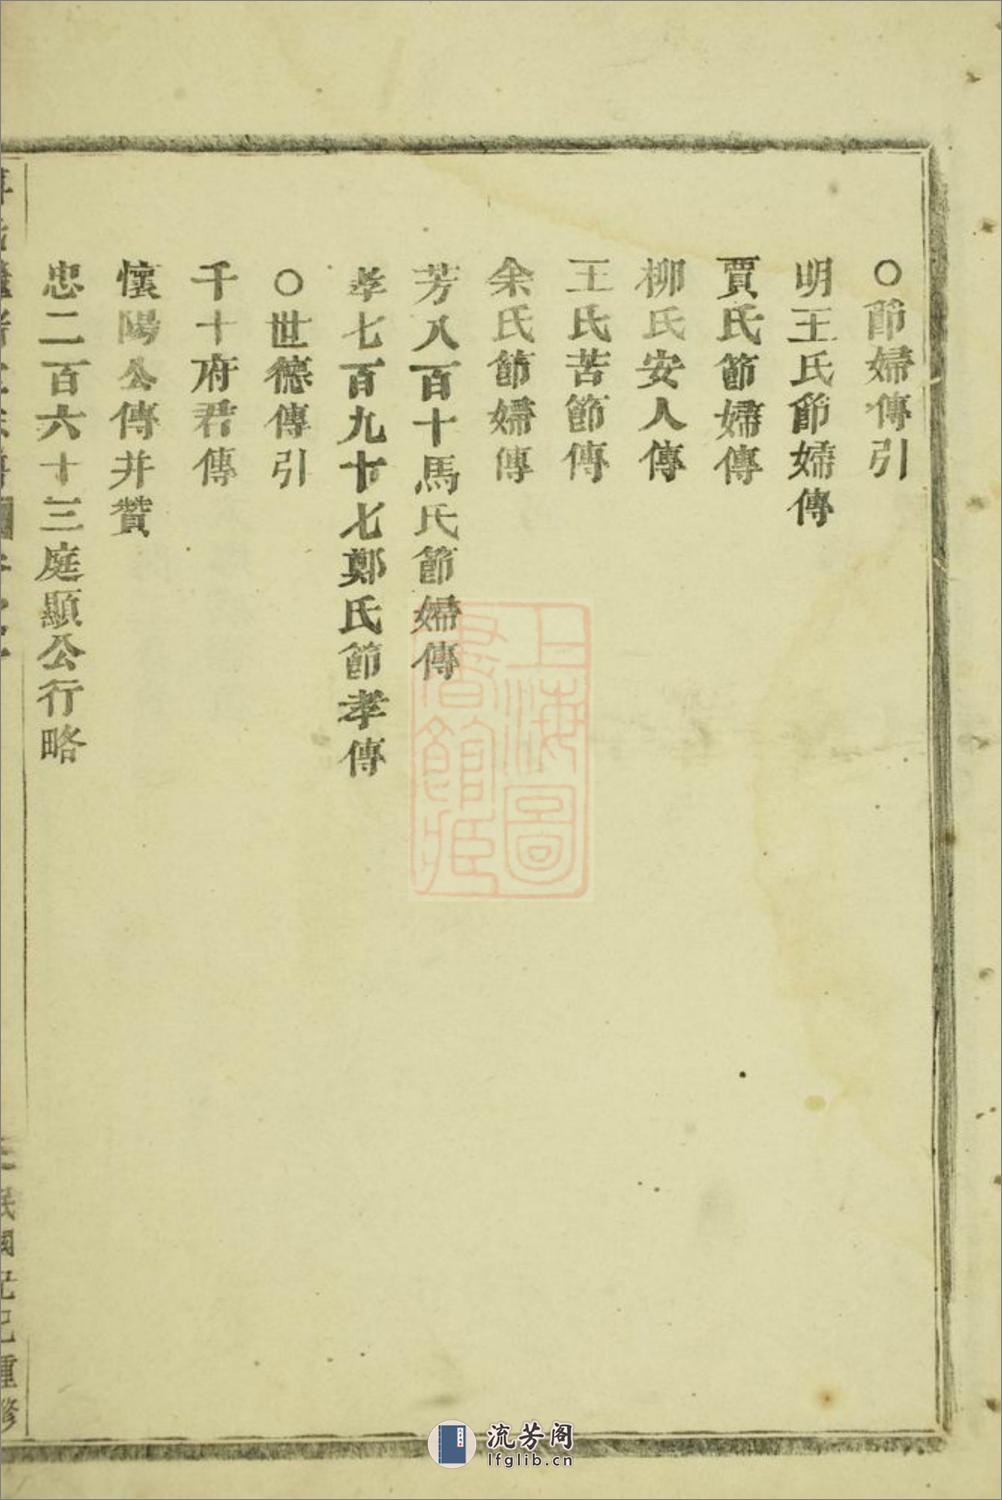 ○節婦傳引
明王氏節婦傳
賈氏節婦傳
柳氏安人傳
王氏苦節傳
余氏節婦傳
芳八百十馬氏節婦傳
孝七百九十七鄭氏節孝傳
○世德傳引
千十府君傳
懷陽公傳并贊
忠二百六十三庭顯公行略
民國
重修
上海圖書館藏
流芳阁
lfglib.cn